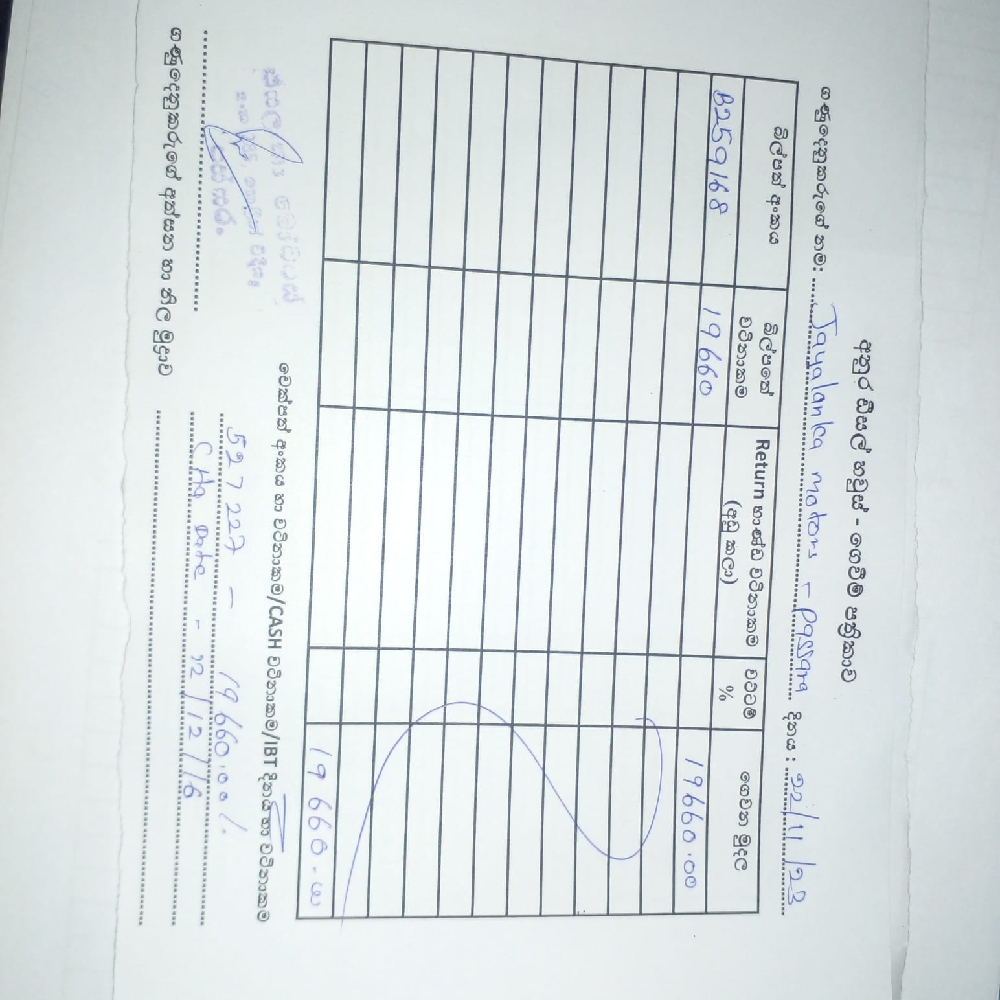 අනුර ඩීසල් හවුස් - ගෙවීම් පත්‍රිකාව
ගණුදෙනුකරුගේ නම: Jayalanka motors - passara දිනය : 22/11/23
බිල්පත් අංකය බිල්පතේ වටිනාකම Return භාණ්ඩ වටිනාකම (අඩු කලා) වට්ටම් % ගෙවන මුදල
B259168 19660 19660.00
19660.00
චෙක්පත් අංකය හා වටිනාකම/CASH වටිනාකම/IBT දිනය හා වටිනාකම
527227 - 19660.00/.
CHq Date - 22/12/16
ගණුදෙනුකරුගේ අත්සන හා නිල මුද්‍රාව